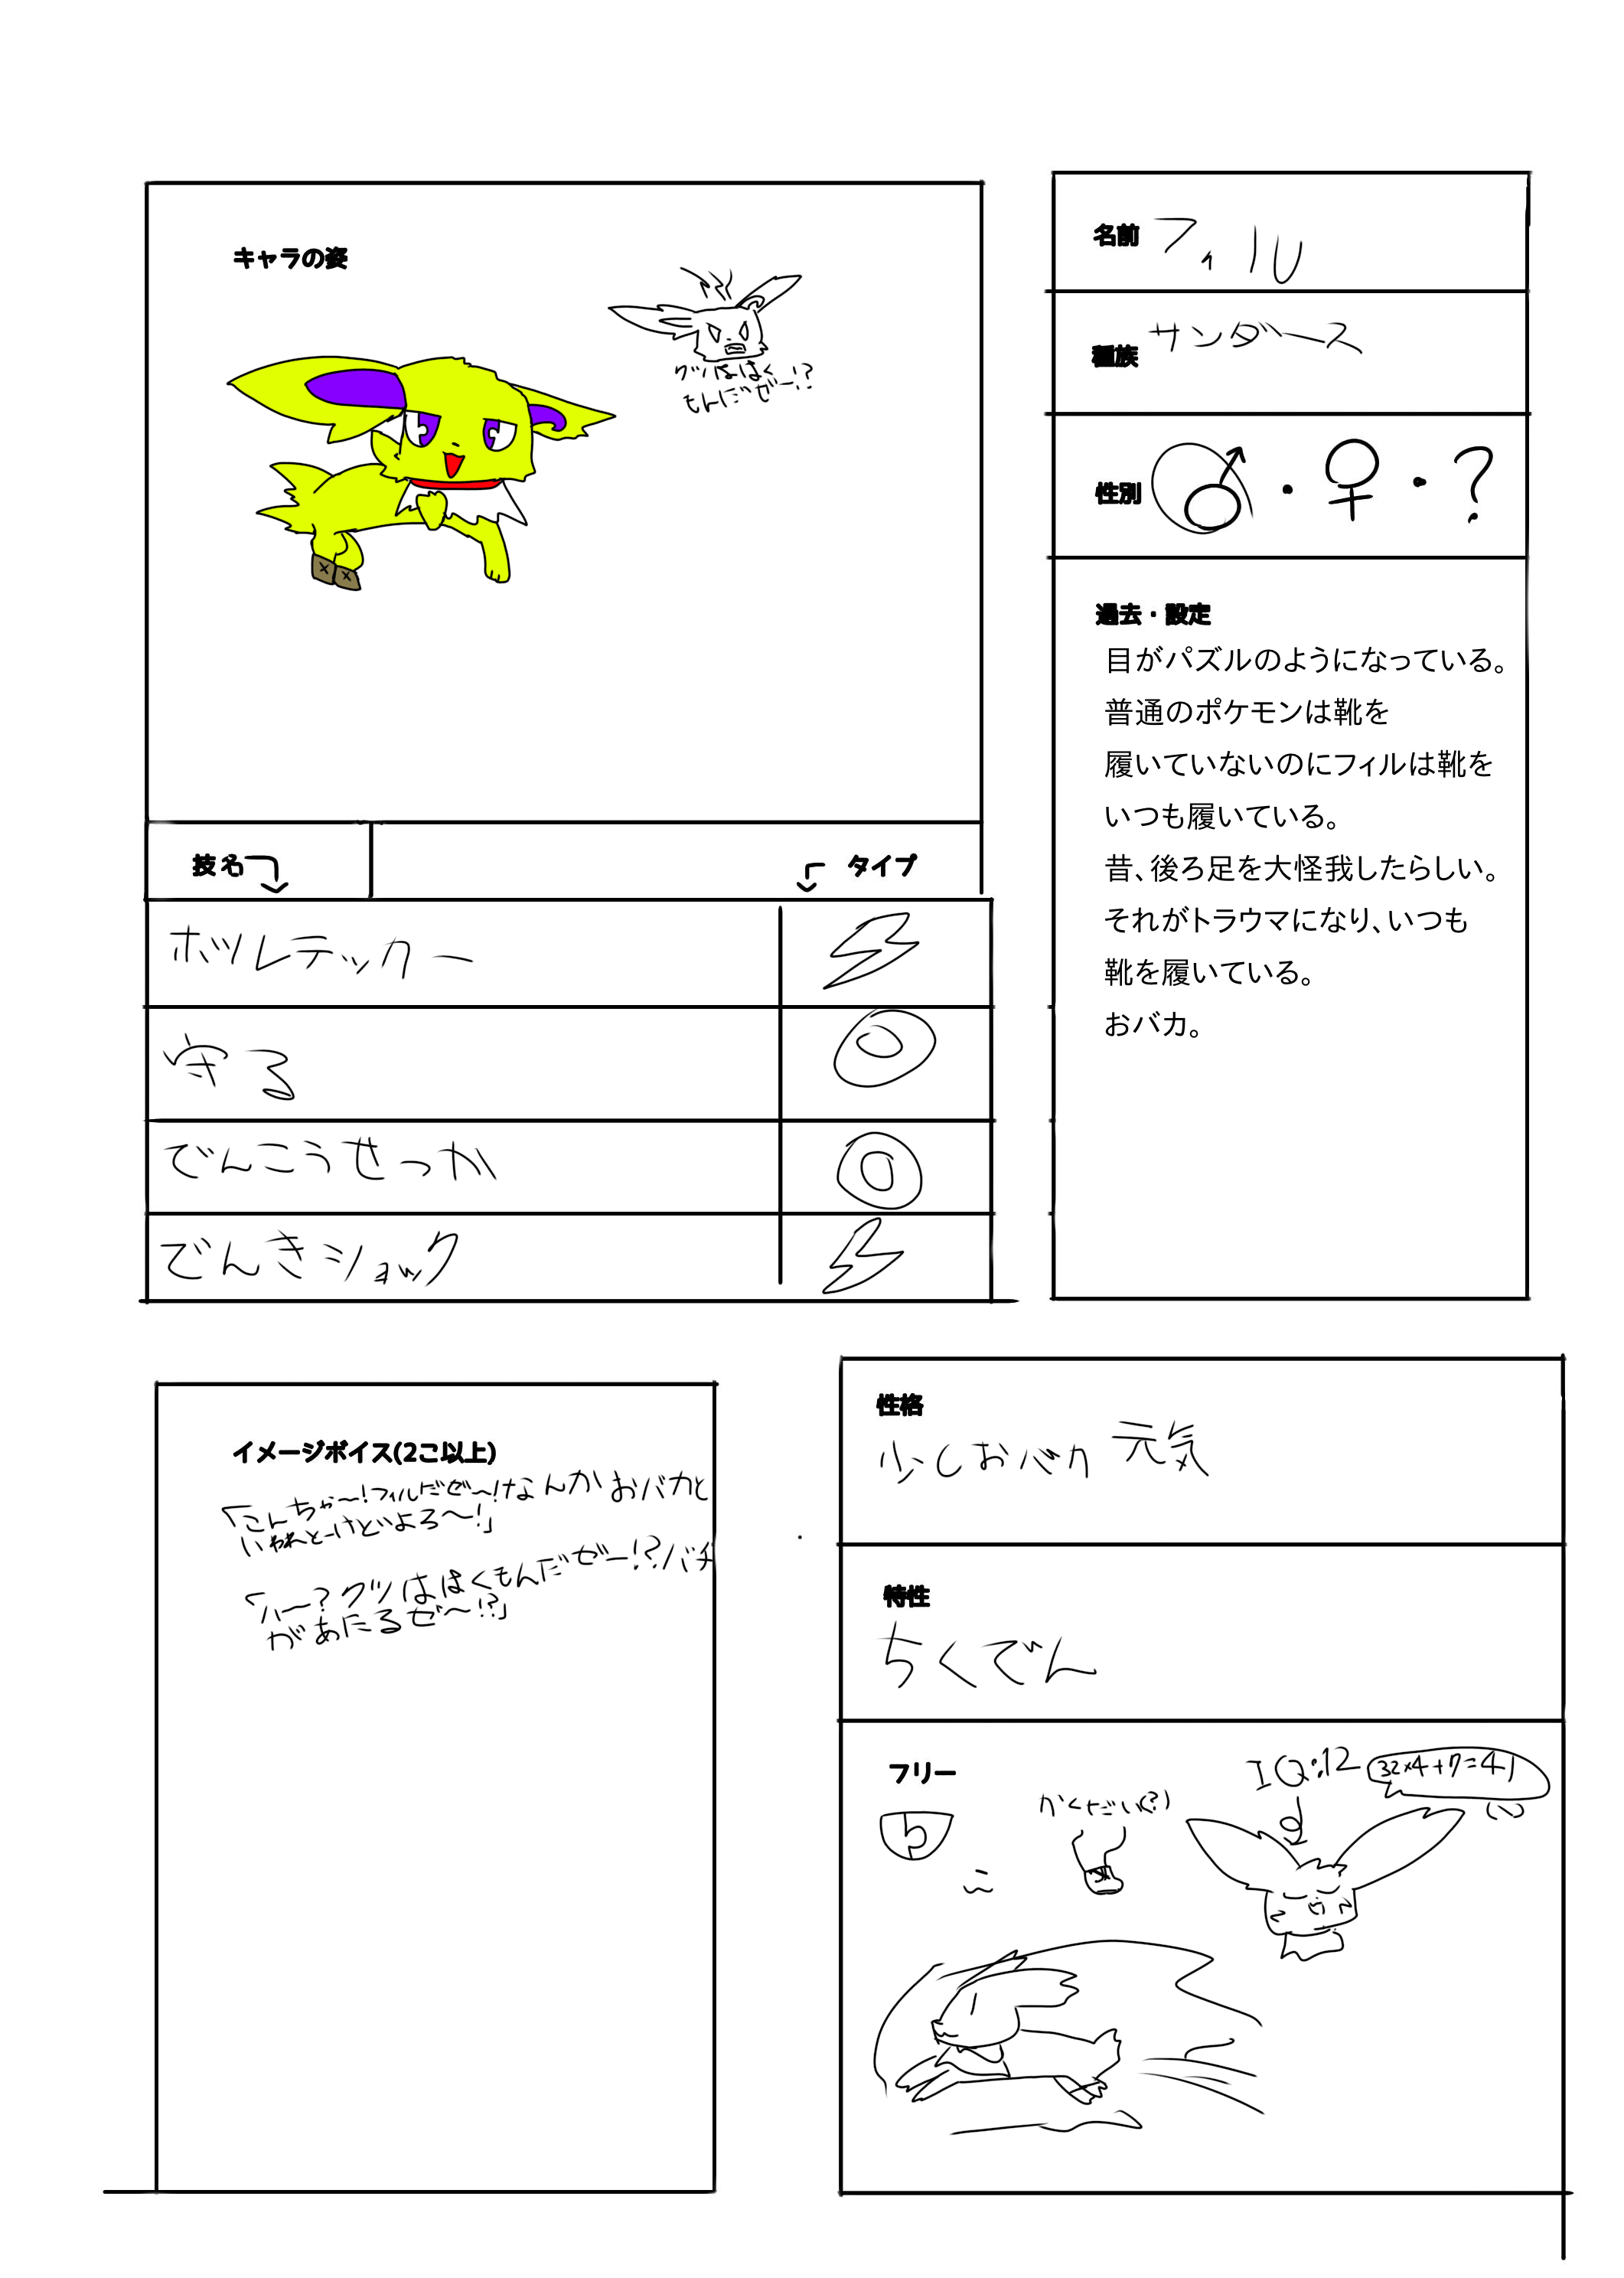 キャラの姿
クツははく
もんだぜー!?
名前 フィル
種族 サンダース
性別 ♂・♀・?
過去・設定
目がパズルのようになっている。
普通のポケモンは靴を
履いていないのにフィルは靴を
いつも履いている。
昔、後ろ足を大怪我したらしい。
それがトラウマになり、いつも
靴を履いている。
おバカ。
技名 タイプ
ボルテッカー
守る
でんこうせっか
でんきショック
イメージボイス(2こ以上)
「こんちゃ〜!フィルだぜ〜!なんかおバカと
いわれとーけどよろ〜!」
「ハー?クツははくもんだぜー!?バチ
があたるぜ〜!?」
性格
少しおバカ 元気
特性
ちくでん
フリー
かくだい(?)
IQ:12
32×4+7=41